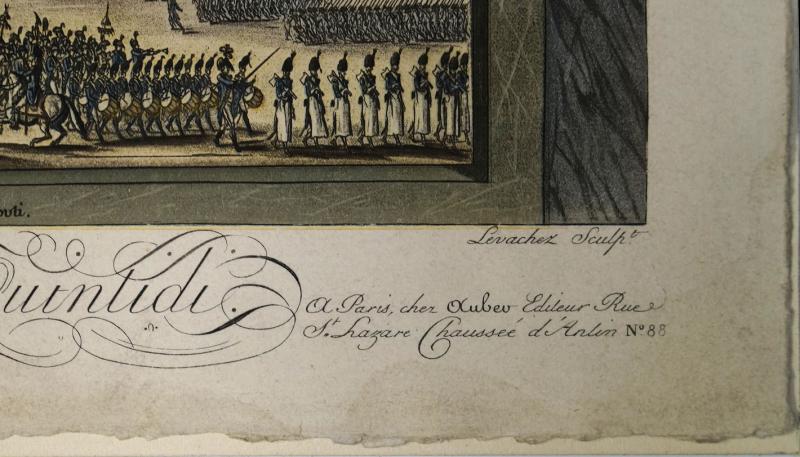 Levachez Sculpt
Quintidi.
A Paris, chez Auber Editeur Rue
St. Lazare Chausseé d'Antin No. 88